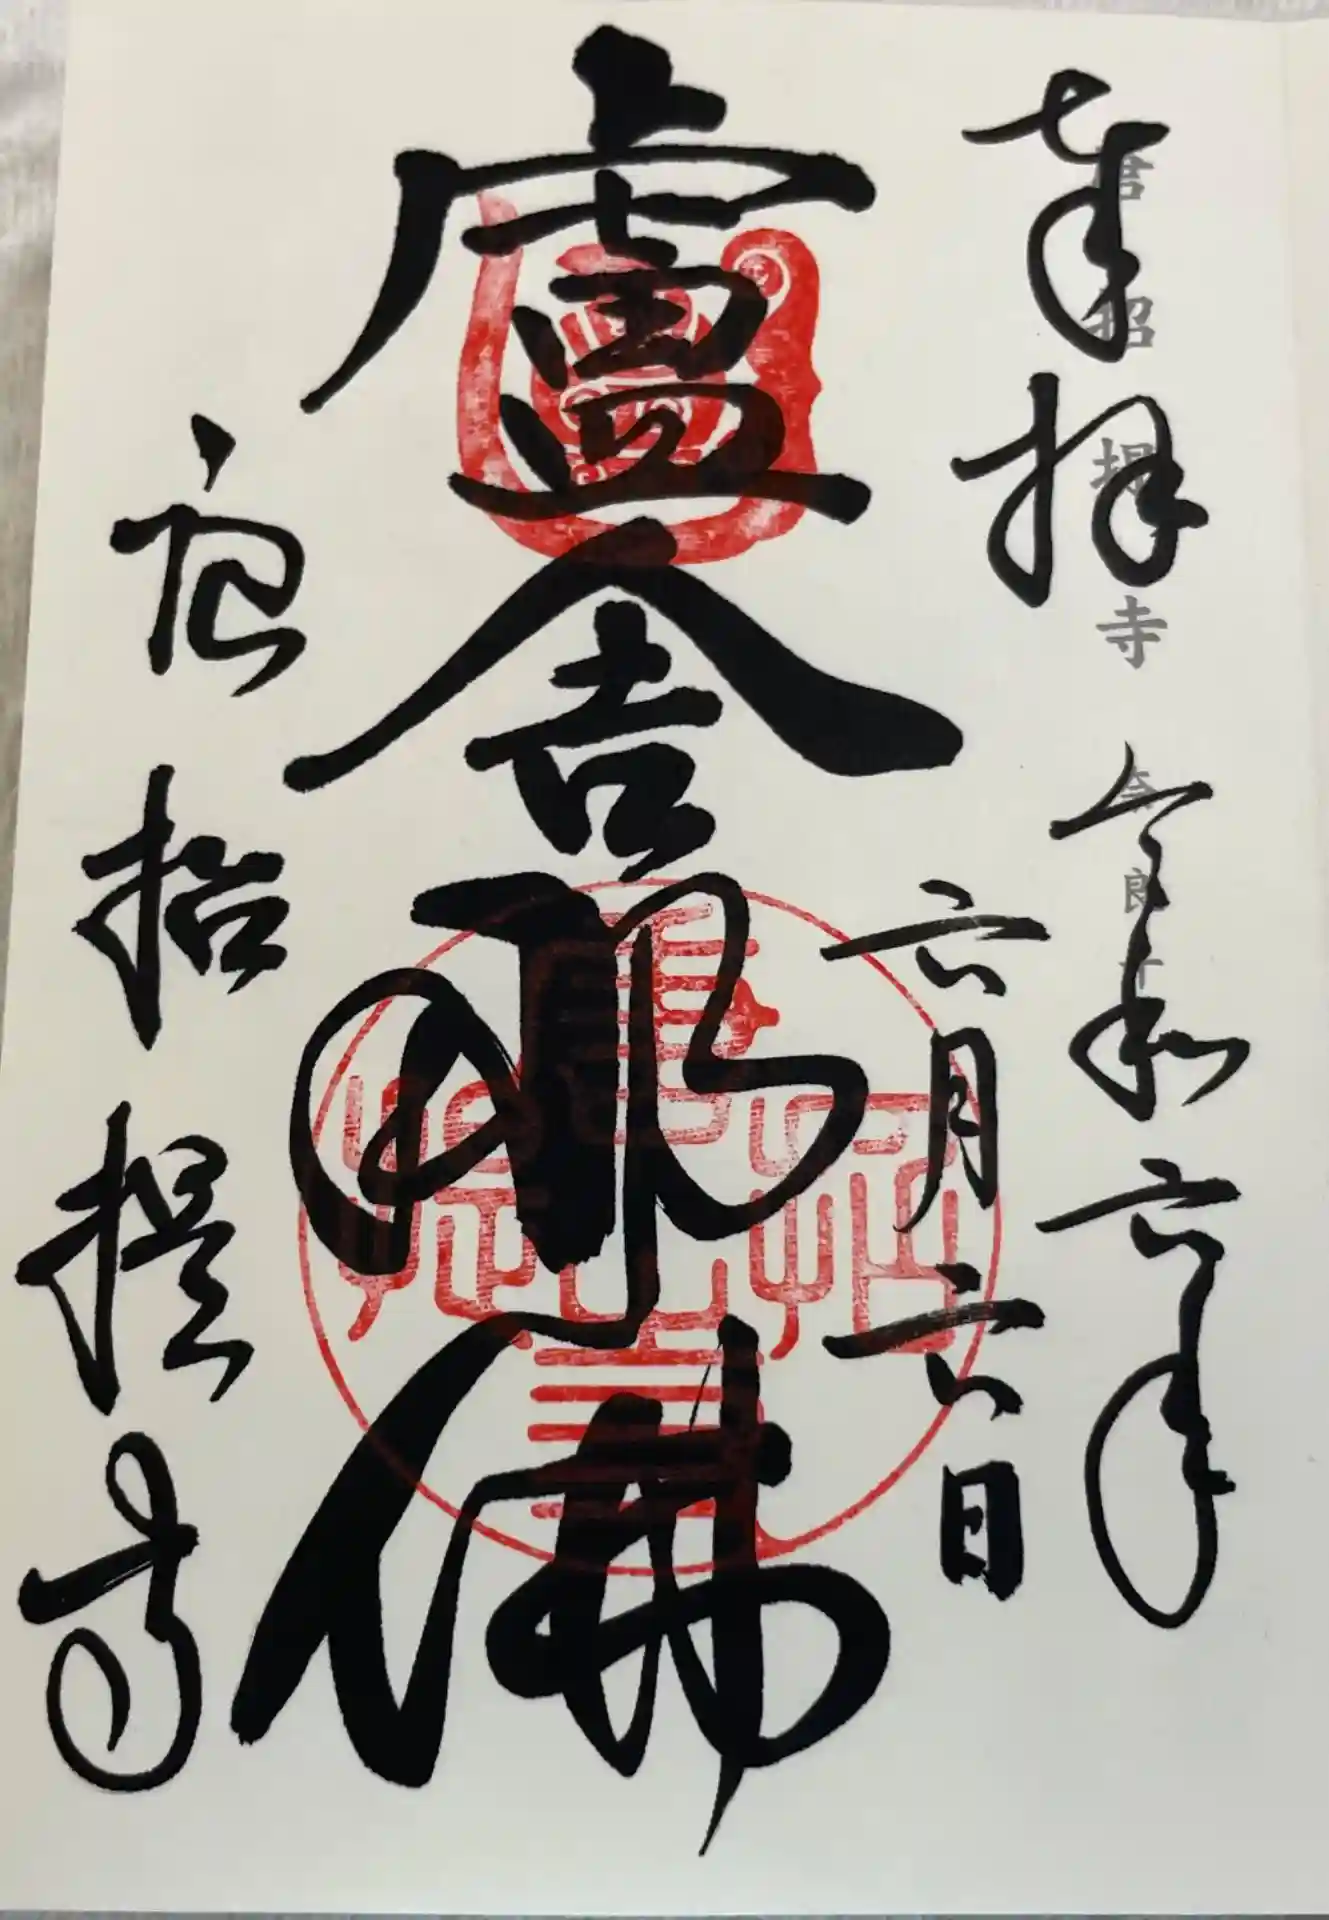 奉拝
唐招提寺 奈良
令和六年
六月六日
盧舎那佛
唐招提寺